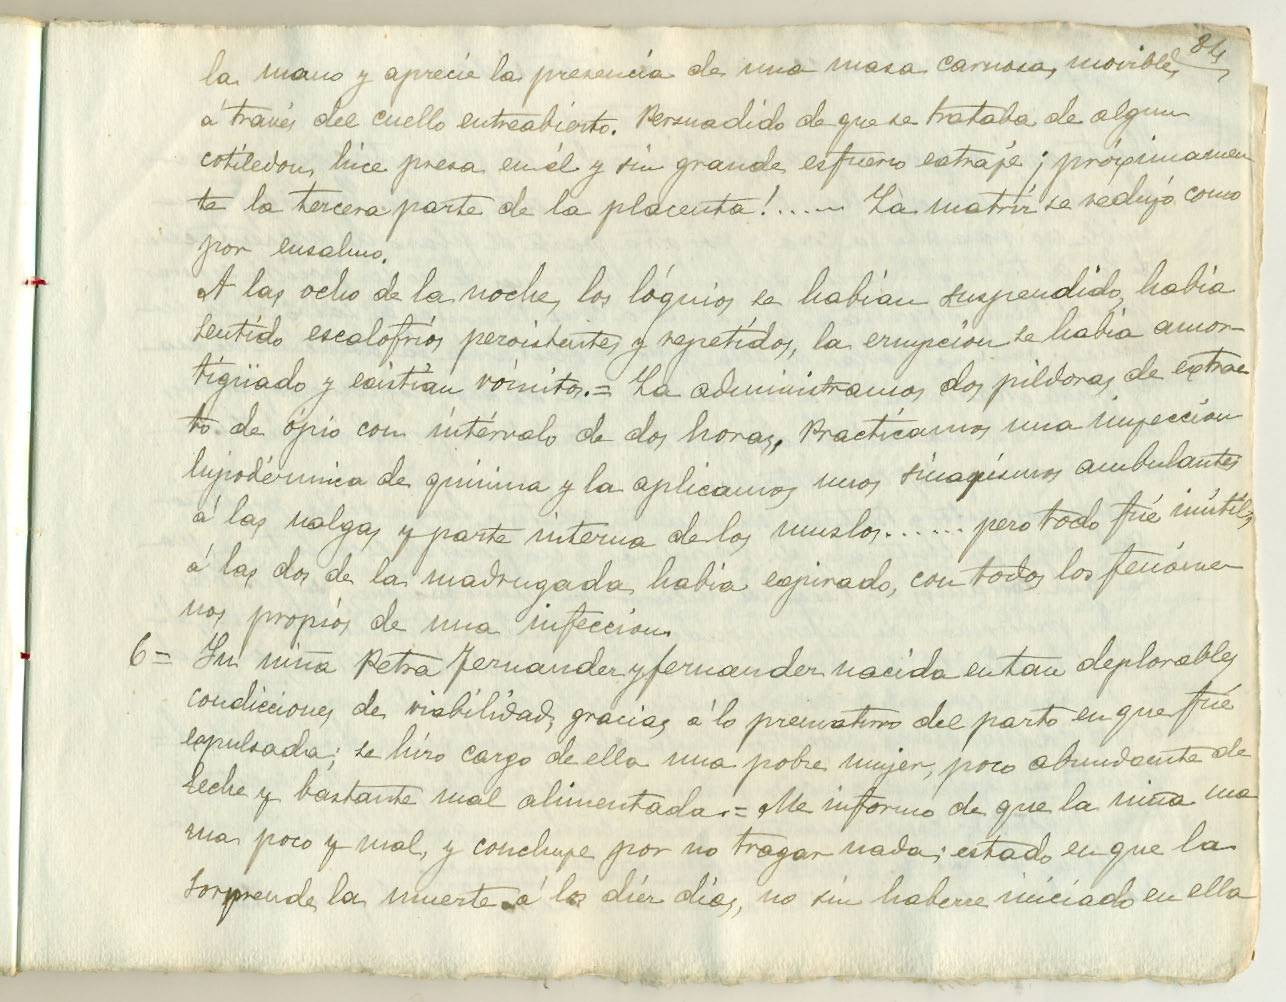 84
la mano y aprecié la presencia de una masa carnosa, movible,
á través del cuello entreabierto. Persuadido de que se trataba de algun
cotiledon, hice presa en él y sin grande esfuerzo extraje ¡próximamen
te la tercera parte de la placenta!..... La matriz se redujó como
por ensalmo.
A las ocho de la noche, los lóquios se habian suspendido, habia
sentido escalofrios persistentes y repetidos, la erupcion se habia amor-
tigüado y existian vómitos.= La administramos dos pildoras de extrac
to de ópio con intérvalo de dos horas, Practicamos una inyeccion
hipodérmica de quinina y la aplicamos unos sinapismos ambulantes
á las nalgas y parte interna de los muslos...... pero todo fué inútil,
á las dos de la madrugada habia expirado, con todos los fenóme
nos propios de una infeccion.
6= Su niña Petra Fernandez y fernandez nacida en tan deplorables
condicciones de viabilidad, gracias á lo prematuro del parto en que fué
expulsada; se hizo cargo de ella una pobre mujer, poco abundante de
leche y bastante mal alimentada.= Me informo de que la niña ma
ma poco y mal, y concluye por no tragar nada; estado en que la
sorprende la muerte á los diez dias, no sin haberse iniciado en ella